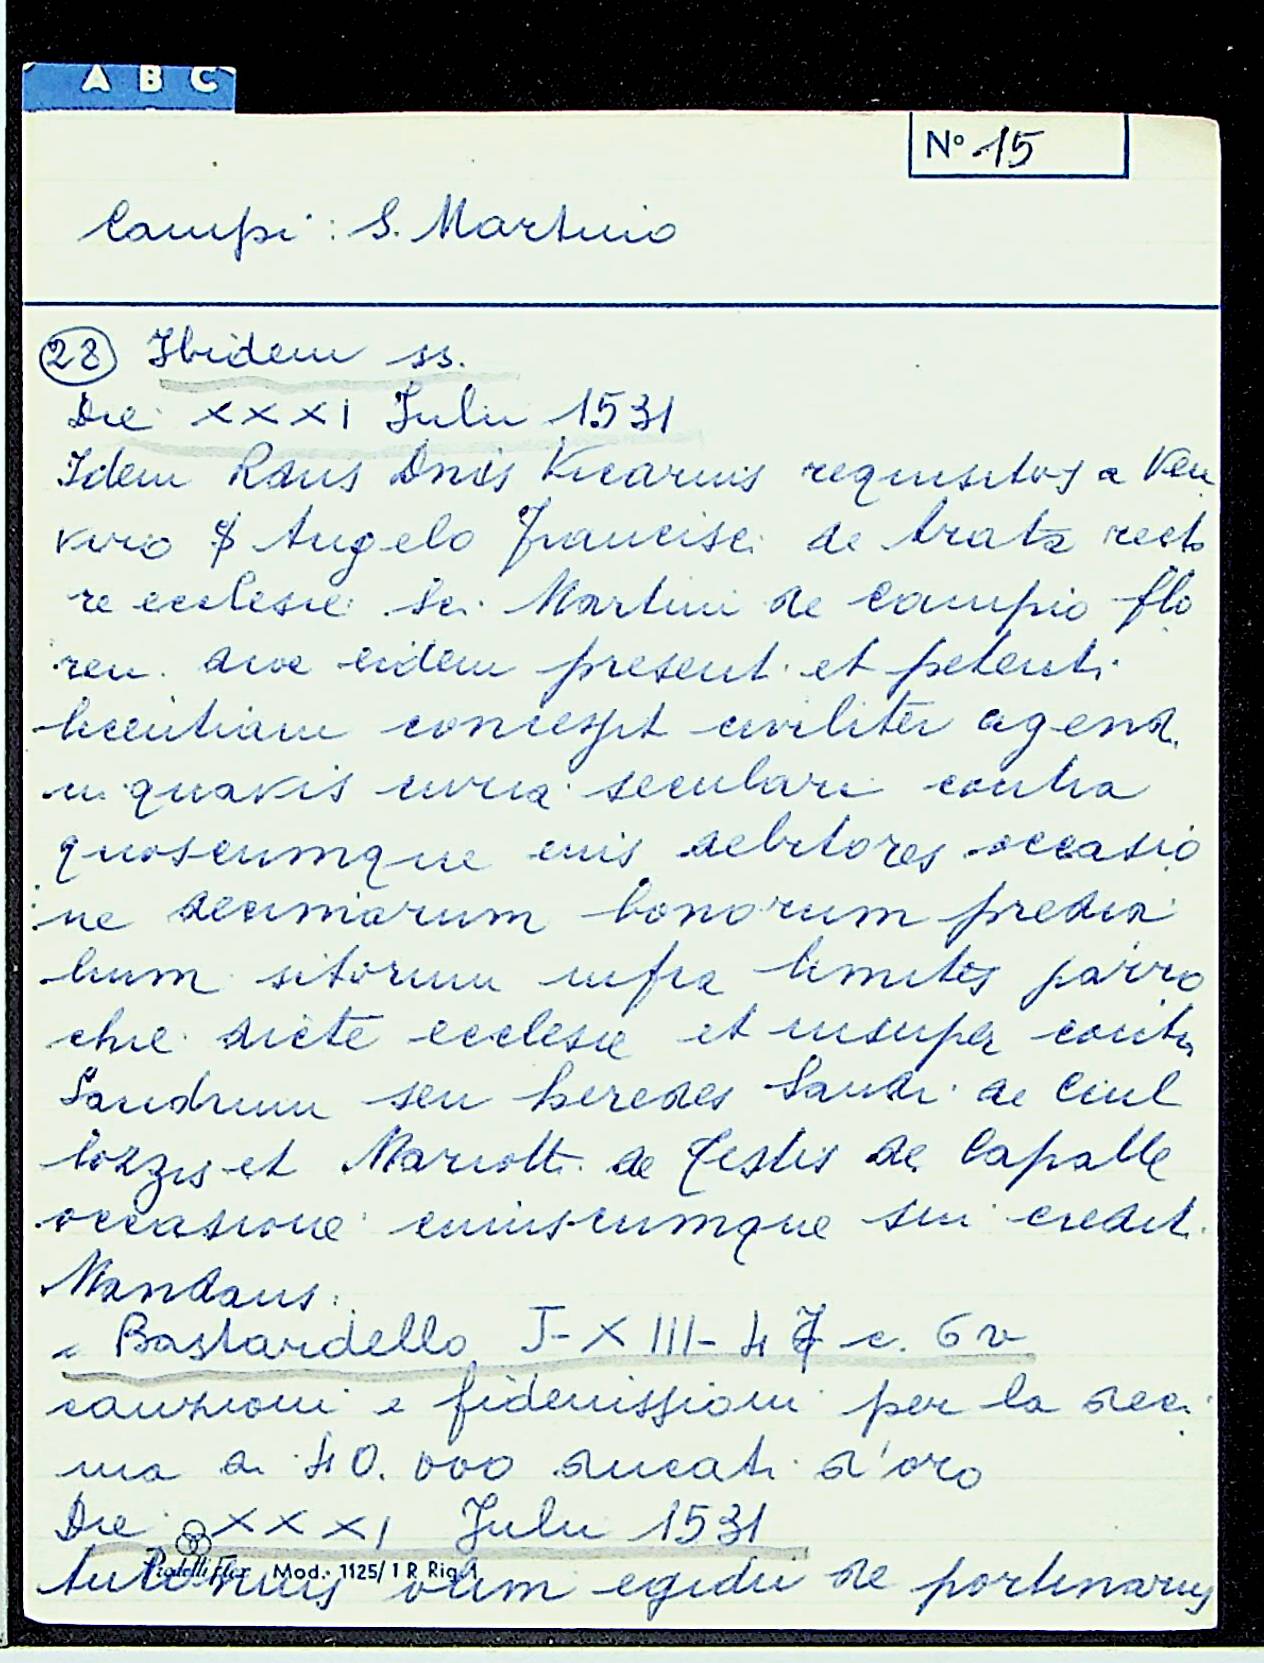 A B C
Nº 15
Campi: S. Martino
28 Ibidem ss.
Die XXXI Julii 1531
Idem Rdus Dnus Vicarius requisitus a Ven
viro S Angelo Francisci de trata recto
re ecclesie Sci Martini de Campio flo
ren. dioc eidem present. et petenti
licentiam concessit civiliter agend.
in quavis curia seculari contra
quoscumque eius debitores occasio
ne decimarum bonorum predia
lium sitorum infra limites parro
chie dicte ecclesie et insuper contra
Sandrum seu heredes Sandri de Ciul
lozzis et Mariotti de Testis de Capalle
occasione cuiuscumque sui credit.
Mandans:
Bastardello J-XIII-47 c. 6v
cauzioni e fideiussioni per la deci
ma di 40.000 ducati d'oro
Die XXXI Julii 1531
Mod. 1125/1 R Rig.
Antonius olim egidii de portinariis